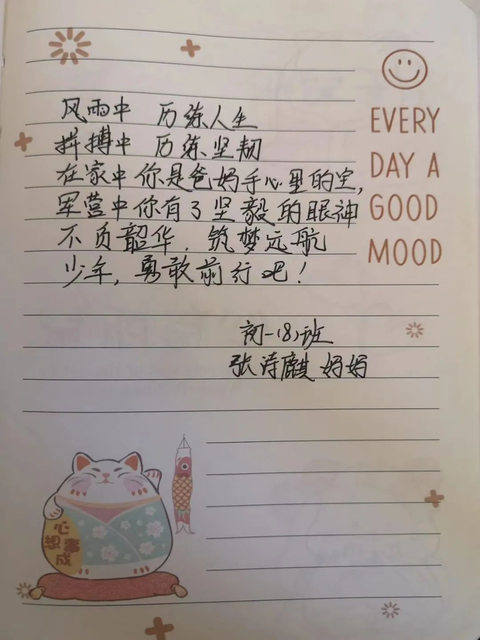 风雨中 历练人生
拼搏中 历练坚韧
在家中你是爸妈手心里的宝,
军营中你有了坚毅的眼神
不负韶华,筑梦远航
少年,勇敢前行吧!
初一(8)班
张诗麒 妈妈
EVERY
DAY A
GOOD
MOOD
心想事成